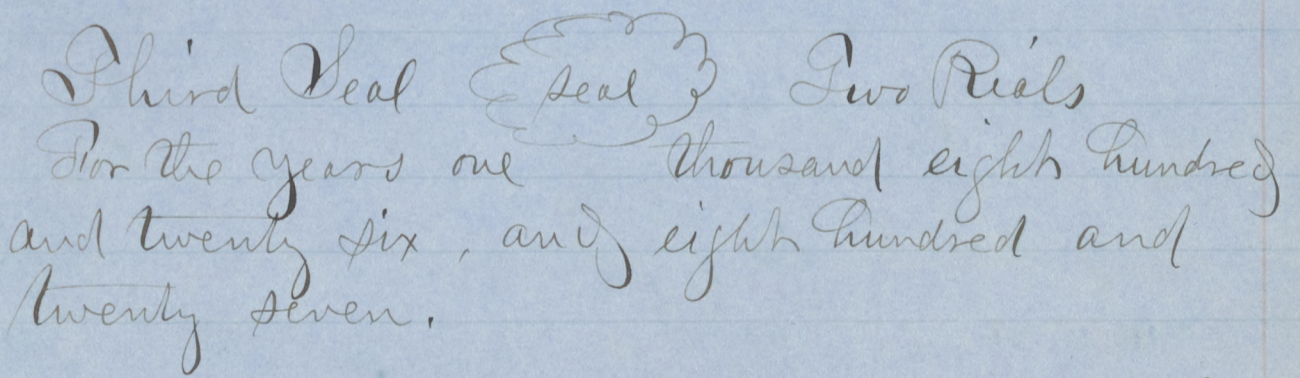 Third Seal seal Two Rials
For the years one thousand eight hundred
and twenty six, and eight hundred and
twenty seven.